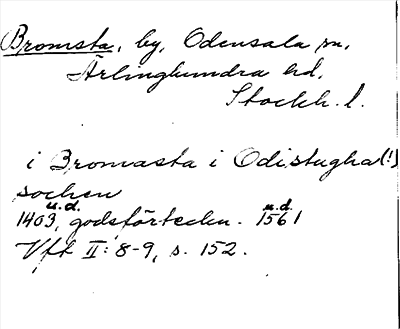 Bromsta, by, Odensala sn,
Ärlinghundra hd,
Stockh. l.
i Bromasta i Odistugha(!)
sochen
u.d. u.d.
1403, godsförteckn. 1561
Vfk II: 8-9, s. 152.